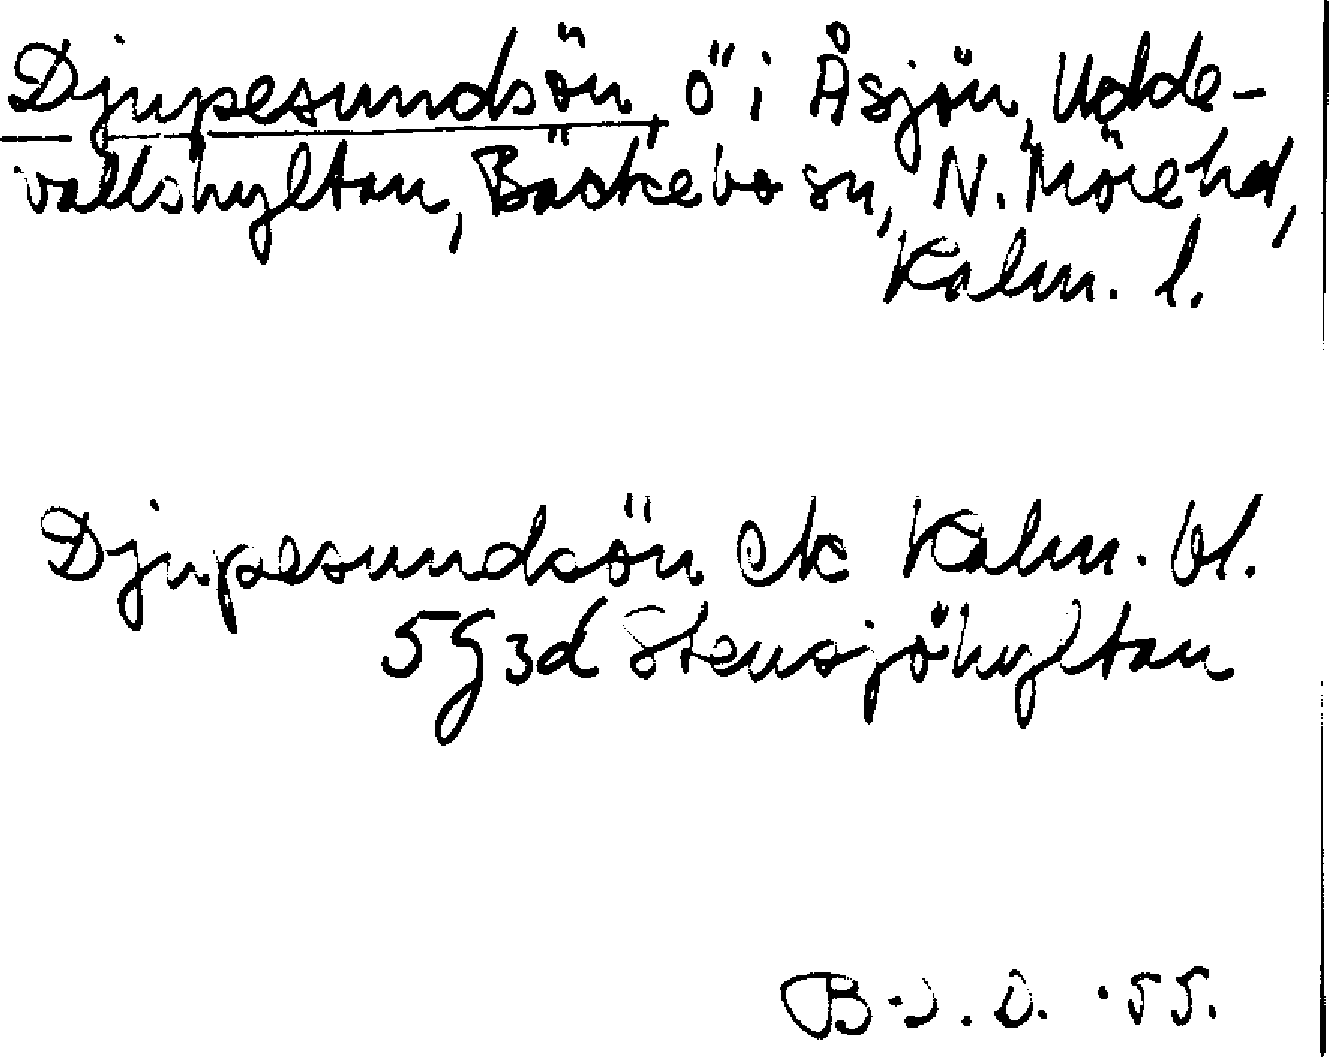 Djupesundsön, ö i Åsjön, Udde-
vallshyltan, Bäckebo sn, N. Möre hd,
Kalm. l.
Djupesundsön ek Kalm. bl.
5G3d Stensjöhyltan
B-J. O. -55.